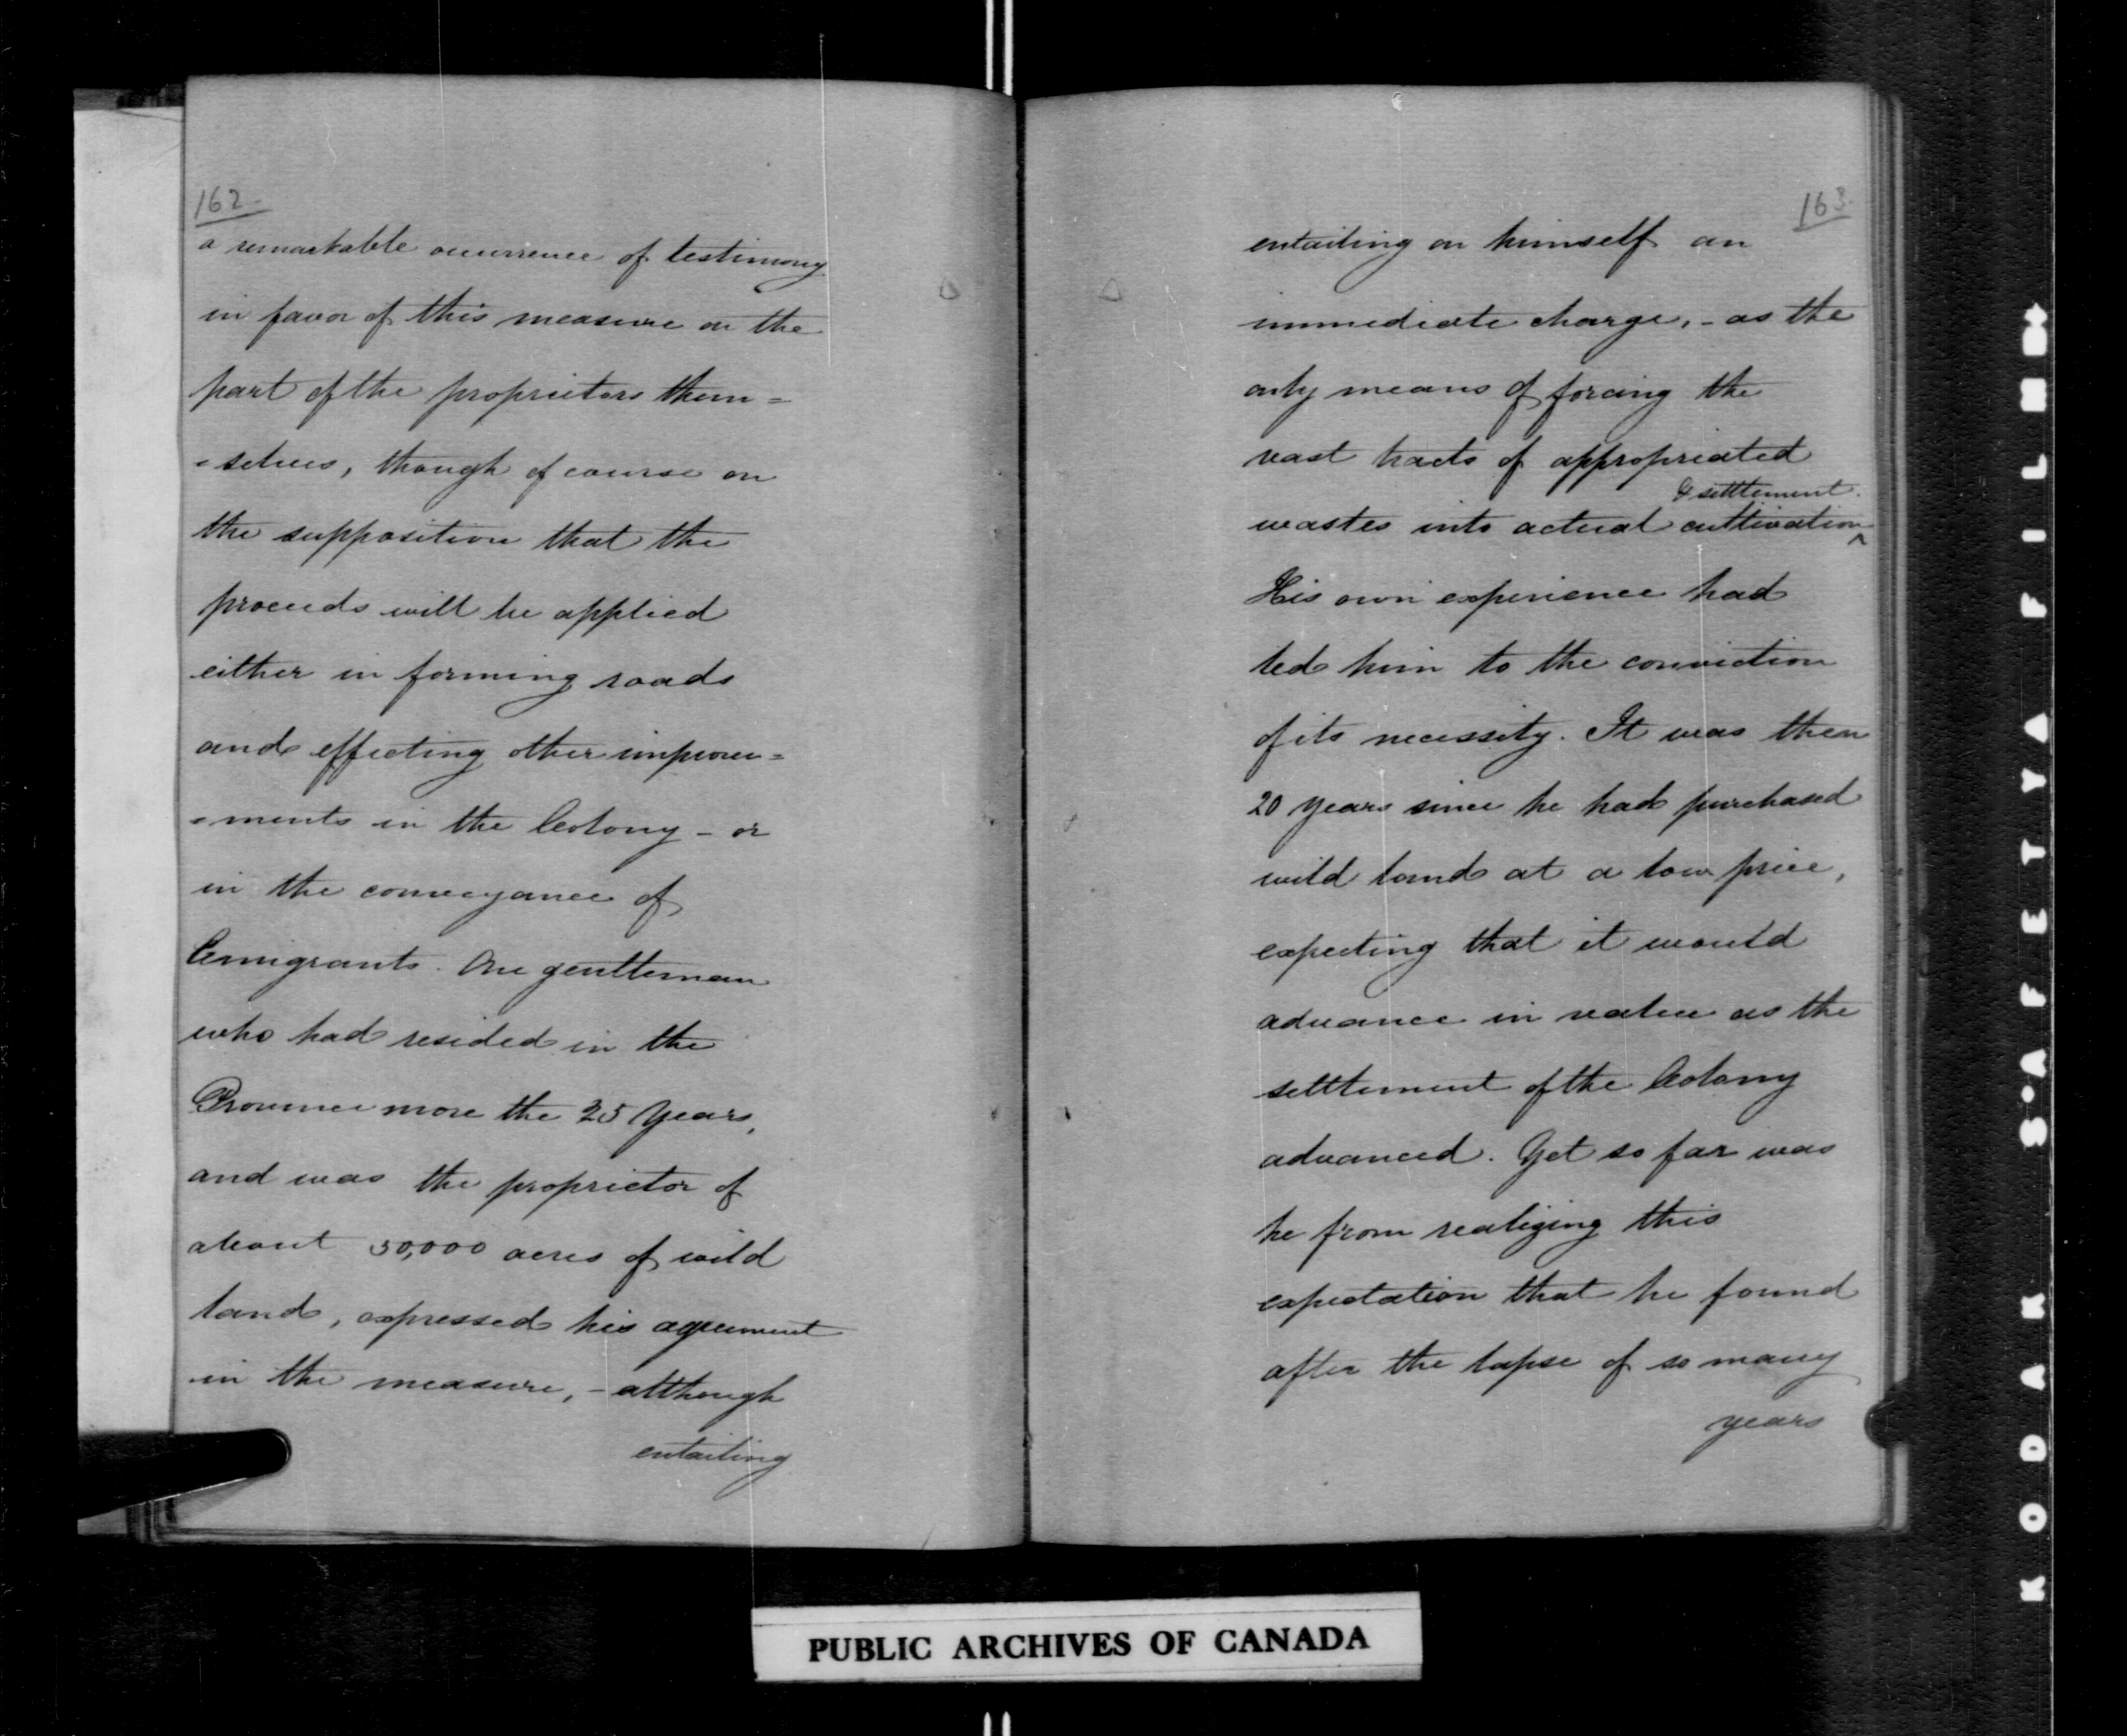 162
a remarkable occurrence of testimony
in favor of this measure on the
part of the proprietors them=
=selves, though of course on
the supposition that the
proceeds will be applied
either in forming roads
and effecting other improve=
=ments in the Colony - or
in the conveyance of
Emigrants. One gentleman
who had resided in the
Province more the 25 years,
and was the proprietor of
about 50,000 acres of wild
land, expressed his agreement
in the measure, - although
entailing
163
entailing on himself an
immediate charge, - as the
only means of forcing the
vast tracts of appropriated
& settlement.
wastes into actual cultivation ^
His own experience had
led him to the conviction
of its necessity. It was then
20 years since he had purchased
wild land at a low price,
expecting that it would
advance in value as the
settlement of the Colony
advanced. Yet so far was
he from realizing this
expectation that he found
after the lapse of so many
years
PUBLIC ARCHIVES OF CANADA
KODAK S·AFETY A FILM